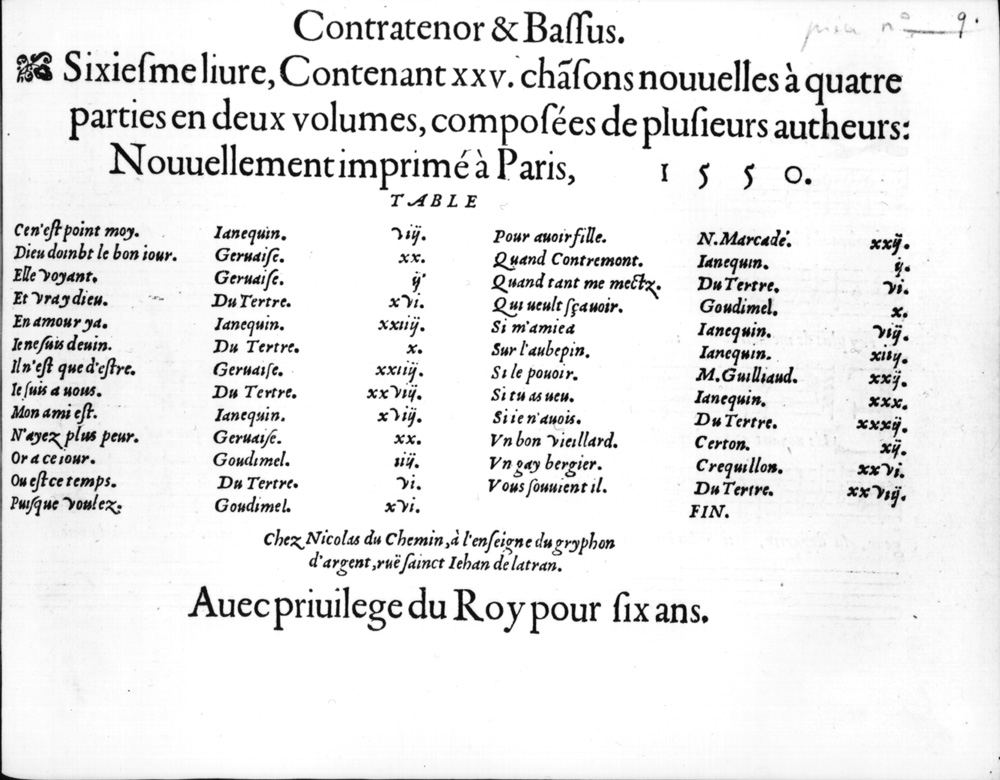 Contratenor & Baſſus.
9.
Sixieſme liure, Contenant xxv. chãſons nouuelles à quatre
parties en deux volumes, compoſées de pluſieurs autheurs:
Nouuellement imprimé à Paris, 1550.
TABLE
Ce n'eſt point moy. Ianequin. viij.
Dieu doinbt le bon iour. Geruaiſe. xx.
Elle voyant. Geruaiſe. ij.
Et vray dieu. Du Tertre. xvi.
En amour y a. Ianequin. xxiiij.
Ie ne ſuis deuin. Du Tertre. x.
Il n'eſt que d'eſtre. Geruaiſe. xxiiij.
Ie ſuis a uous. Du Tertre. xxviij.
Mon ami eſt. Ianequin. xviij.
N'ayez plus peur. Geruaiſe. xx.
Or a ce iour. Goudimel. iiij.
Ou eſt ce temps. Du Tertre. vi.
Puiſque voulez. Goudimel. xvi.
Pour auoir fille. N. Marcadé. xxij.
Quand Contremont. Ianequin. ij.
Quand tant me mectz. Du Tertre. vi.
Qui ueult ſçauoir. Goudimel. x.
Si m'amie a Ianequin. viij.
Sur l'aubepin. Ianequin. xiiij.
Si le pouoir. M. Guilliaud. xxij.
Si tu as ueu. Ianequin. xxx.
Si ie n'auois. Du Tertre. xxxij.
Vn bon vieillard. Certon. xij.
Vn gay bergier. Crequillon. xxvi.
Vous ſouuient il. Du Tertre. xxviij.
FIN.
Chez Nicolas du Chemin, à l'enſeigne du gryphon
d'argent, ruë ſainct Iehan de latran.
Auec priuilege du Roy pour ſix ans.